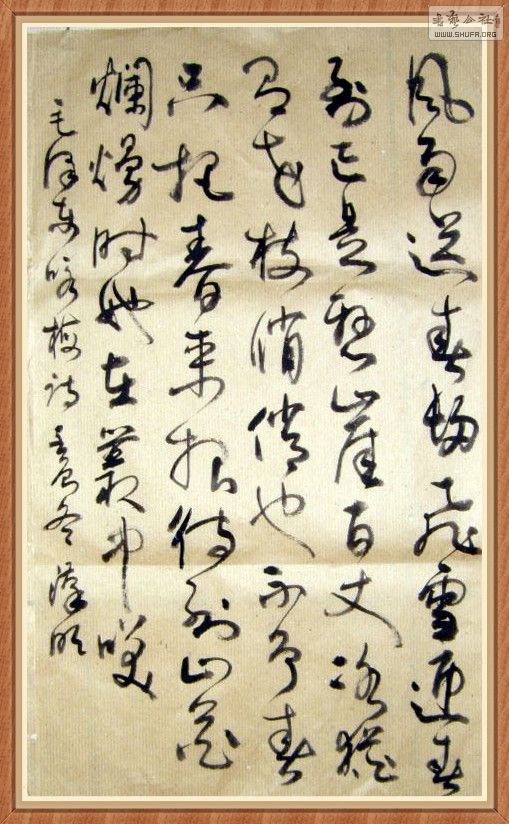 書藝公社
WWW.SHUFA.ORG
風雨送春歸飛雪迎春
到已是懸崖百丈冰猶
有花枝俏俏也不争春
只把春来报待到山花
爛熳时她在叢中咲
毛泽东咏梅诗 冬